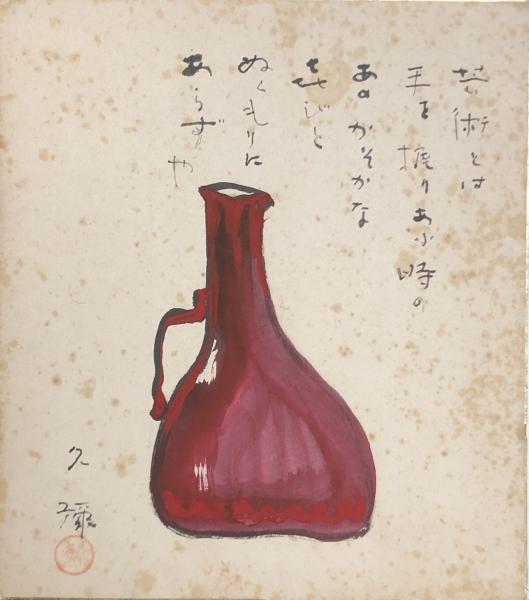 芸術とは
手を振りあふ時の
あの かそかな
よびと
ぬくもりに
あらずや
久彌